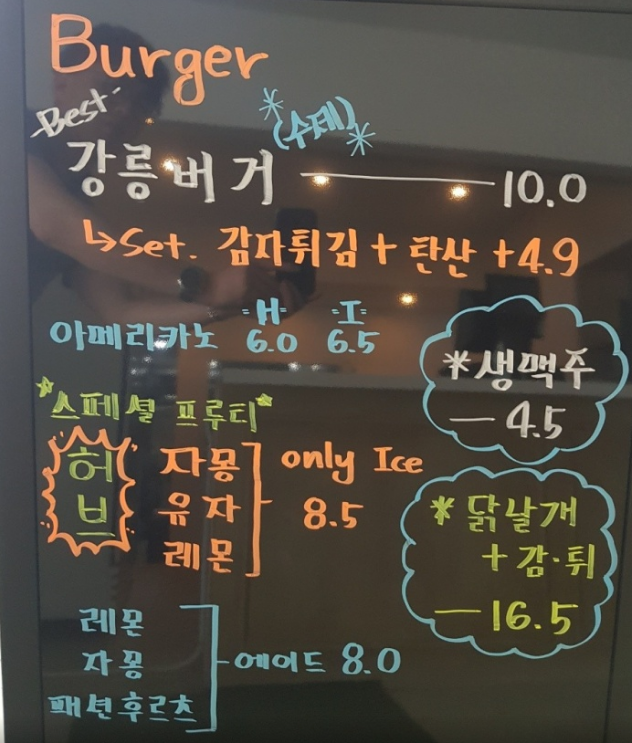 Burger
Best
(수제)
강릉버거 — 10.0
↳Set. 감자튀김 + 탄산 +4.9
H I
아메리카노 6.0 6.5
*생맥주
— 4.5
*스페셜 프루티*
허브
자몽
유자
레몬
only Ice
8.5
*닭날개
+감·튀
— 16.5
레몬
자몽
패션후르츠
에이드 8.0